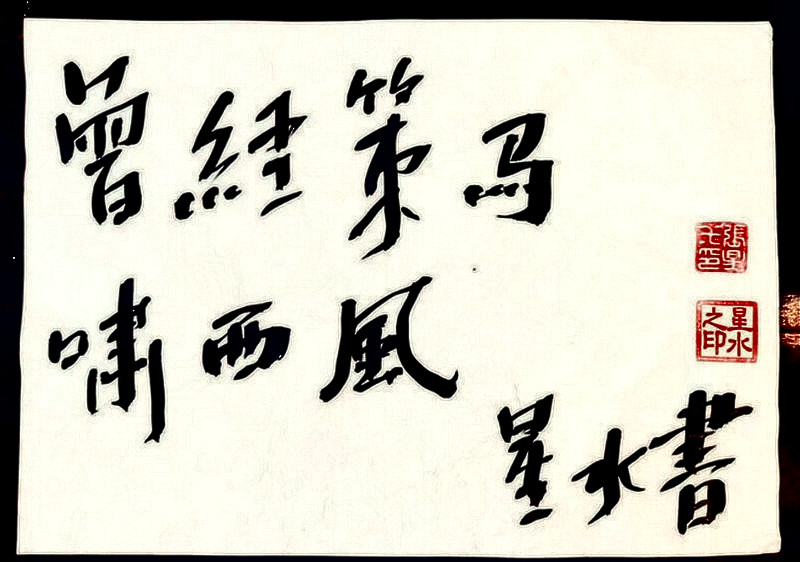 曾經策马
啸西風
星水書
星水之印